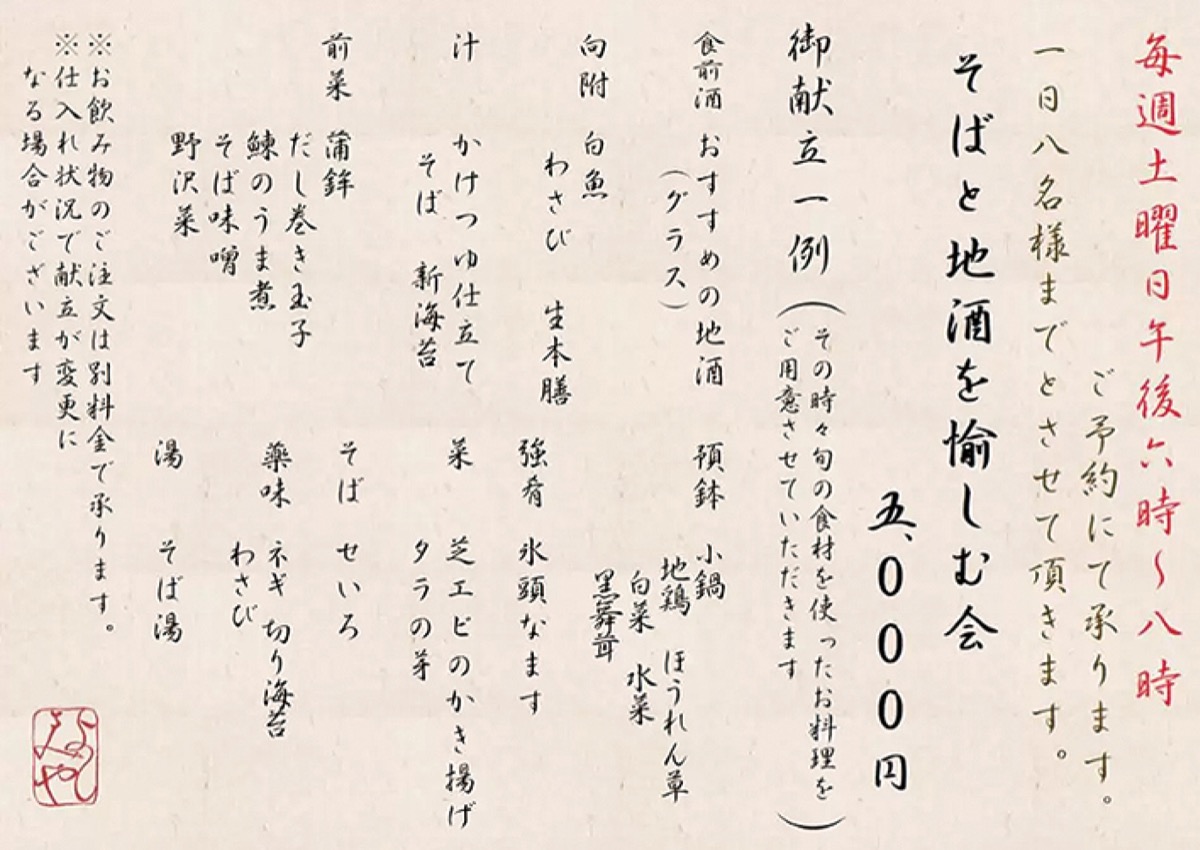 毎週土曜日午後六時〜八時
ご予約にて承ります。
一日八名様までとさせて頂きます。
そばと地酒を愉しむ会
五、000円
御献立一例
(その時々旬の食材を使ったお料理を
ご用意させていただきます)
食前酒 おすすめの地酒
(グラス)
向附 白魚
わさび 生本膳
汁 かけつゆ仕立て
そば 新海苔
前菜 蒲鉾
だし巻き玉子
鰊のうま煮
そば味噌
野沢菜
預鉢 小鍋
地鶏 ほうれん草
白菜 水菜
黒舞茸
強肴 氷頭なます
菜 芝エビのかき揚げ
タラの芽
そば せいろ
薬味 ネギ 切り海苔
わさび
湯 そば湯
※お飲み物のご注文は別料金で承ります。
※仕入れ状況で献立が変更に
なる場合がございます